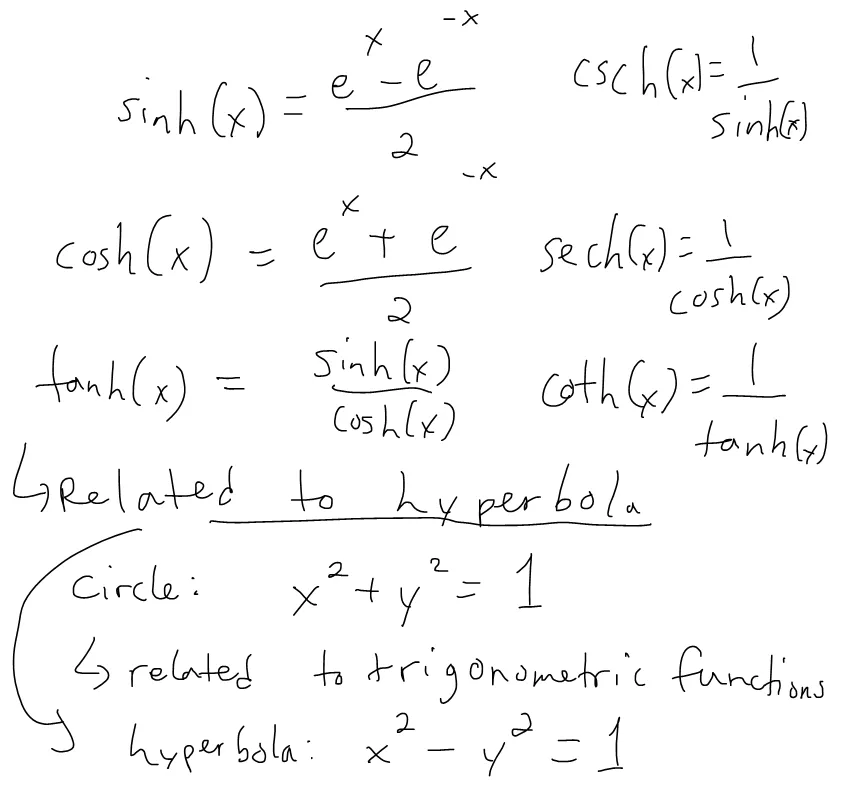 sinh(x) = (e^x - e^-x)/2    csch(x) = 1/sinh(x)
cosh(x) = (e^x + e^-x)/2    sech(x) = 1/cosh(x)
tanh(x) = sinh(x)/cosh(x)    coth(x) = 1/tanh(x)
↳ Related to hyperbola
Circle: x² + y² = 1
↳ related to trigonometric functions
hyperbola: x² - y² = 1